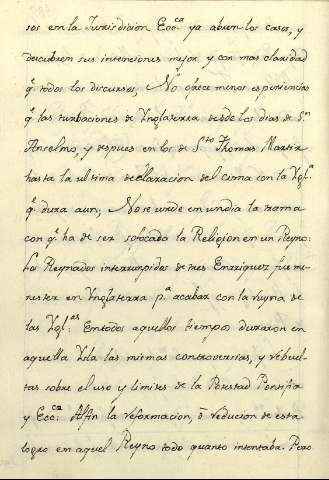 sos en la Jurisdicion Ecc.ca ya abun los casos, y
descubren sus intenciones mejor y con mas claridad
q.e todos los discursos, No ofrece menos experiencias
q.e las turbaciones de Ynglaterra desde los dias de S.n
Anselmo, y despues en los de S.to Thomas Martir
hasta la ultima declaracion del cisma con la Ygl.a
q.e dura aun, No se urde en un dia la trama
con q.e ha de ser sofocada la Religion en un Reyno:
Los Reynados interrumpidos de tres Enrriquez fue me
nester en Ynglaterra p.a acabar con la ruyna de
las Ygl.as En todos aquellos tiempos duraron en
aquella Ysla las mismas controversias, y rebuel
tas sobre el uso y limites de la Potestad Pontifia
y Ecc.ca Alfin la reformacion, ò reducion de esta
logro en aquel Reyno todo quanto intentaba. Pero